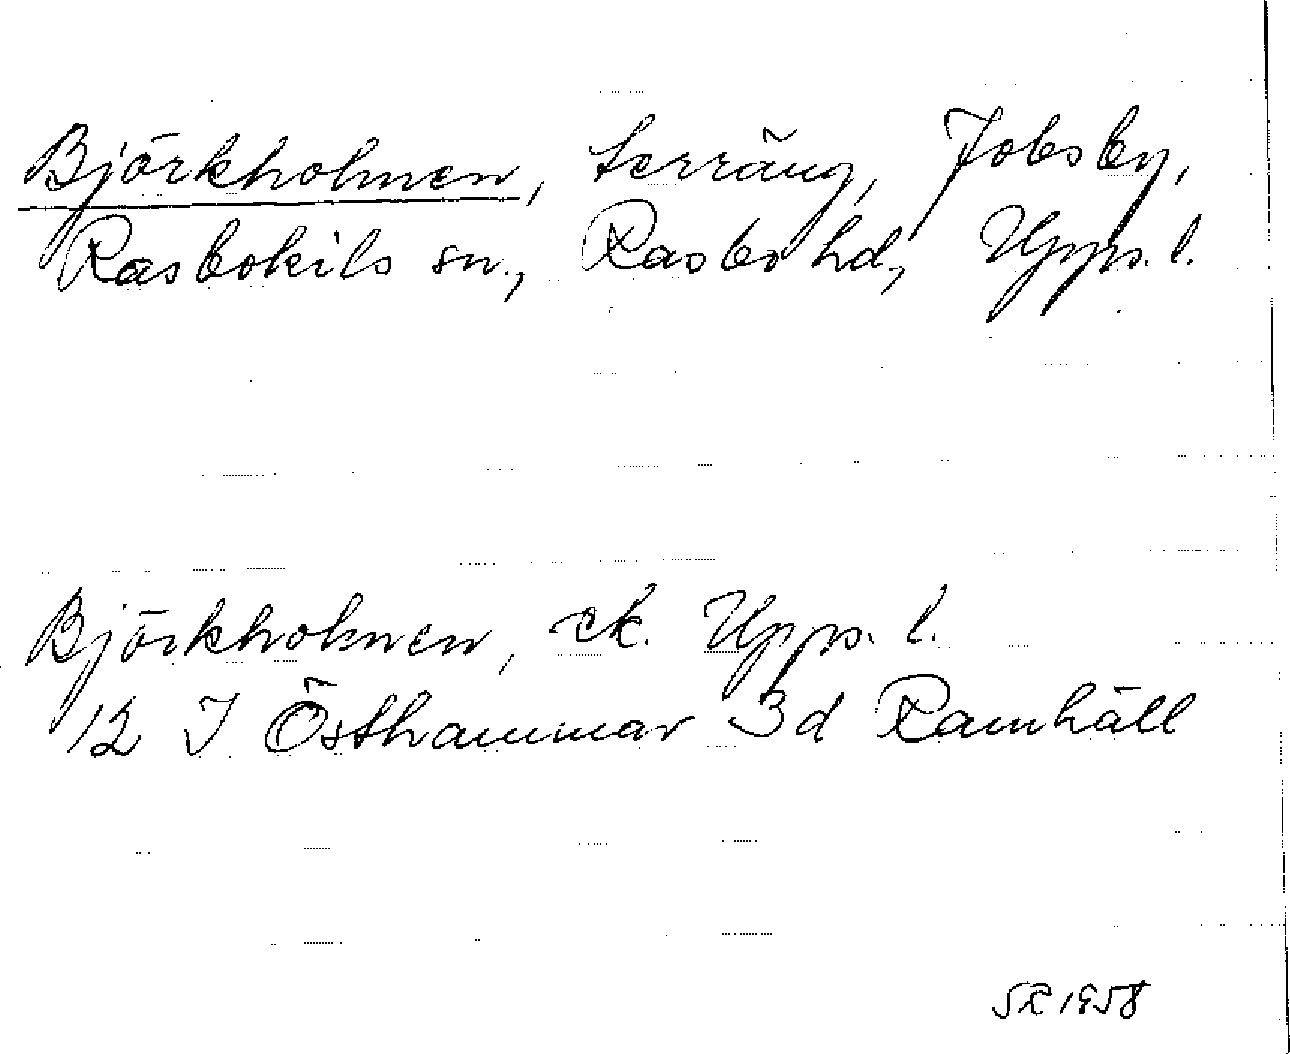 Björkholmen, terräng, Jobsby,
Rasbokils sn., Rasbo hd, Upps. l.
Björkholmen, ek. Upps. l.
12 I Östhammar 3d Ramhäll
SR 1958